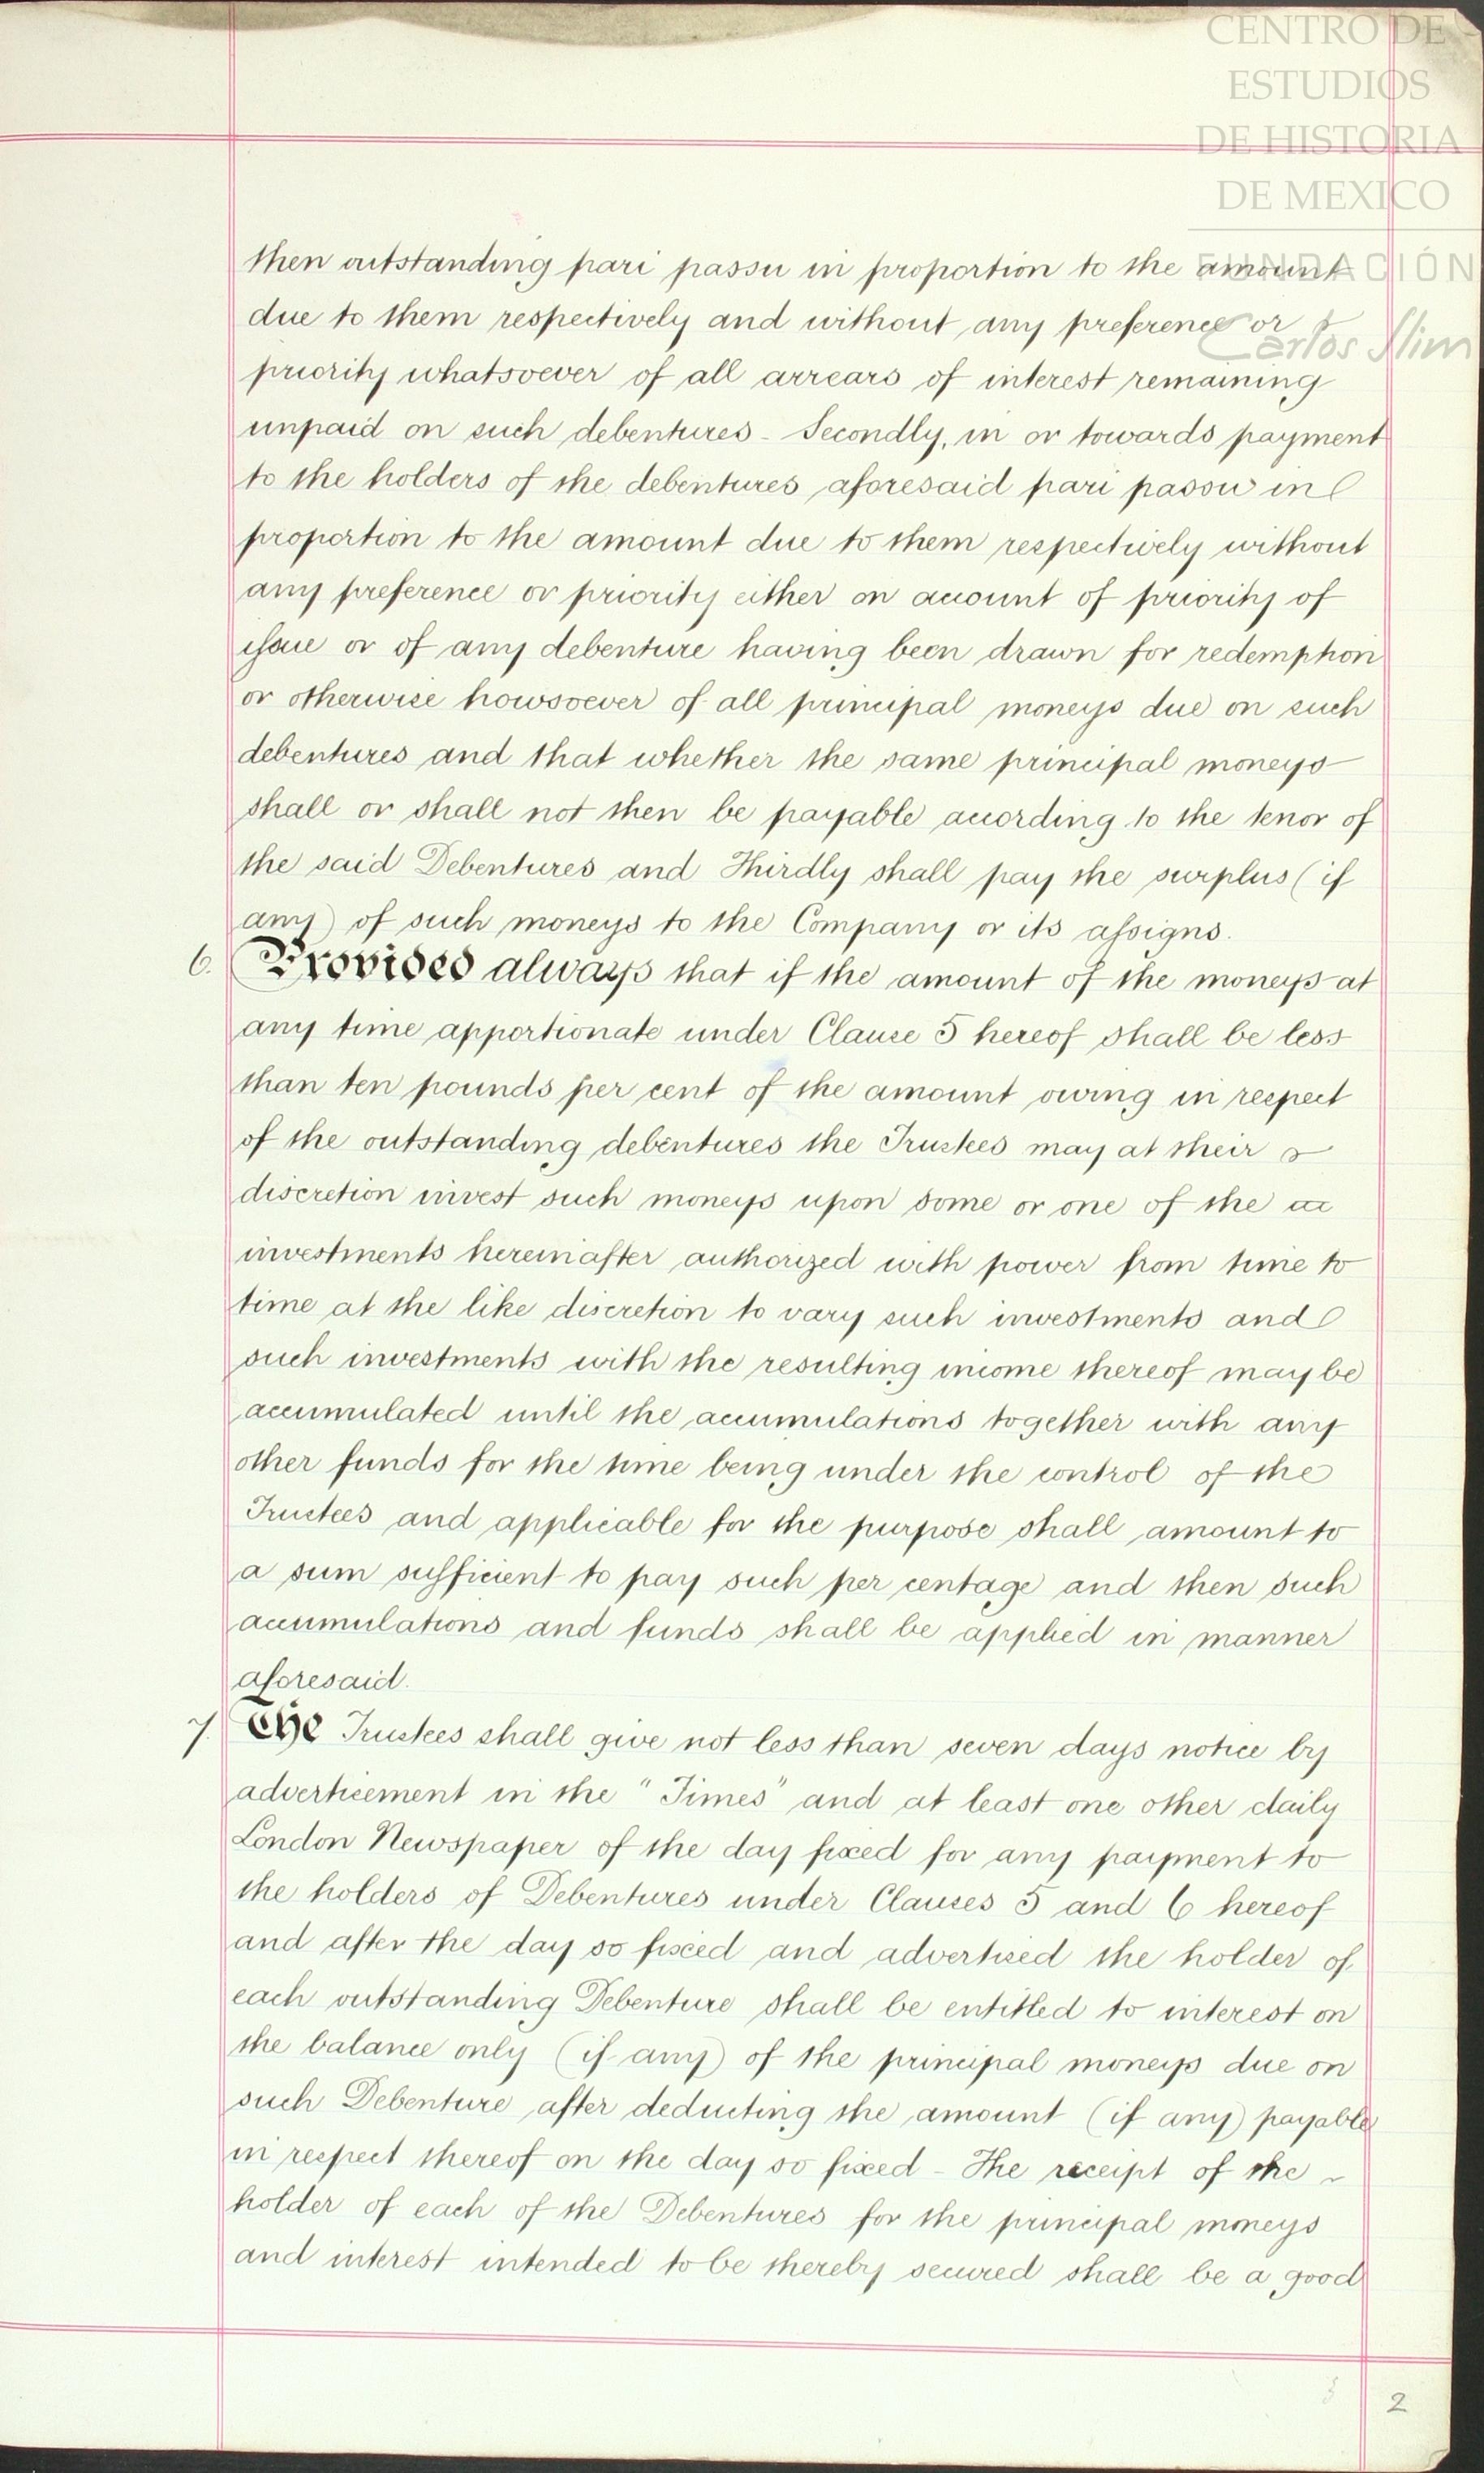 CENTRO DE
ESTUDIOS
DE HISTORIA
DE MEXICO
FUNDACIÓN
Carlos Slim
then outstanding pari passu in proportion to the amount
due to them respectively and without any preference or
priority whatsoever of all arrears of interest remaining
unpaid on such debentures - Secondly, in or towards payment
to the holders of the debentures aforesaid pari passu in
proportion to the amount due to them respectively without
any preference or priority either on account of priority of
issue or of any debenture having been drawn for redemption
or otherwise howsoever of all principal moneys due on such
debentures and that whether the same principal moneys
shall or shall not then be payable according to the tenor of
the said Debentures and Thirdly shall pay the surplus (if
any) of such moneys to the Company or its assigns.
6. Provided always that if the amount of the moneys at
any time apportionate under Clause 5 hereof shall be less
than ten pounds per cent of the amount owing in respect
of the outstanding debentures the Trustees may at their
discretion invest such moneys upon some or one of the
investments hereinafter authorized with power from time to
time at the like discretion to vary such investments and
such investments with the resulting income thereof may be
accumulated until the accumulations together with any
other funds for the time being under the control of the
Trustees and applicable for the purpose shall amount to
a sum sufficient to pay such per centage and then such
accumulations and funds shall be applied in manner
aforesaid.
7. The Trustees shall give not less than seven days notice by
advertisement in the "Times" and at least one other daily
London Newspaper of the day fixed for any payment to
the holders of Debentures under Clauses 5 and 6 hereof
and after the day so fixed and advertised the holder of
each outstanding Debenture shall be entitled to interest on
the balance only (if any) of the principal moneys due on
such Debenture after deducting the amount (if any) payable
in respect thereof on the day so fixed - The receipt of the
holder of each of the Debentures for the principal moneys
and interest intended to be thereby secured shall be a good
2